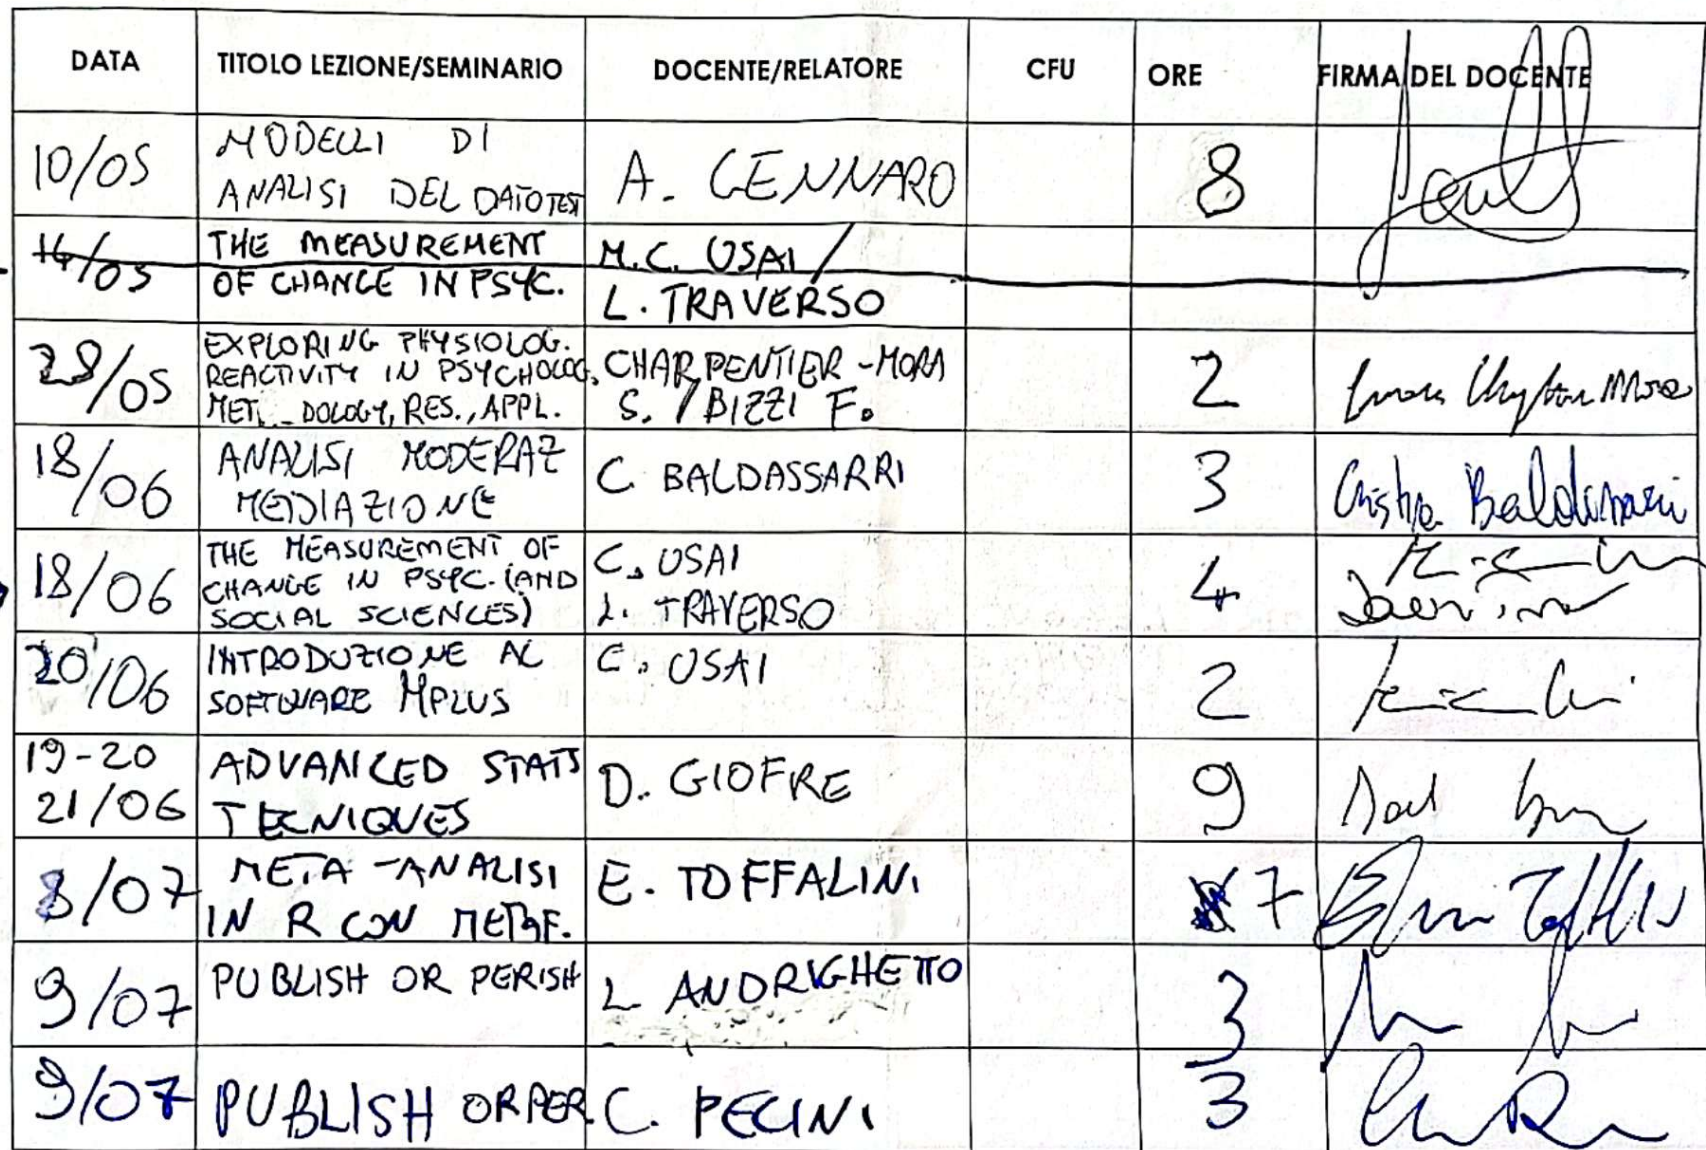 DATA TITOLO LEZIONE/SEMINARIO DOCENTE/RELATORE CFU ORE FIRMA DEL DOCENTE
10/05 MODELLI DI
ANALISI DEL DATO TEST A. GENNARO 8
14/05 THE MEASUREMENT
OF CHANGE IN PSYC. M.C. USAI /
L. TRAVERSO
28/05 EXPLORING PHYSIOLOG.
REACTIVITY IN PSYCHOLOG. CHARPENTIER-MORA
MET. DOLOGY, RES., APPL. S. / BIZZI F. 2
18/06 ANALISI MODERAZ
MEDIAZIONE C. BALDASSARRI 3 Cristina Baldassarri
18/06 THE MEASUREMENT OF
CHANGE IN PSYC. (AND
SOCIAL SCIENCES) C. USAI
L. TRAVERSO 4
20/06 INTRODUZIONE AL
SOFTWARE MPLUS C. USAI 2
19-20
21/06 ADVANCED STATS
TECNIQUES D. GIOFRE 9
8/07 META-ANALISI
IN R CON METAF. E. TOFFALINI 7
9/07 PUBLISH OR PERISH L. ANDRIGHETTO 3
9/07 PUBLISH OR PER. C. PECINI 3